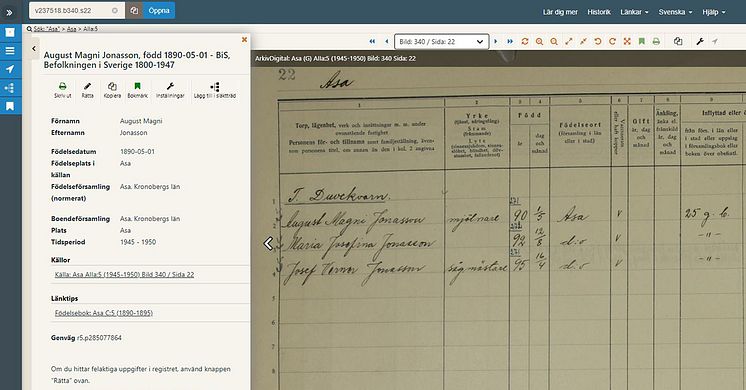 v237518.b340.s22
Öppna
Lär dig mer Historik Länkar Svenska Hjälp
Sök: "Asa" > Asa > AIIa:5
August Magni Jonasson, född 1890-05-01 - BiS,
Befolkningen i Sverige 1800-1947
Skriv ut Rätta Kopiera Bokmärk Inställningar Lägg till i släktträd
Förnamn August Magni
Efternamn Jonasson
Födelsedatum 1890-05-01
Födelseplats i källan Asa
Födelseförsamling (normerat) Asa. Kronobergs län
Boendeförsamling Asa. Kronobergs län
Plats Asa
Tidsperiod 1945 - 1950
Källor
Källa: Asa AIIa:5 (1945-1950) Bild 340 / Sida 22
Länktips
Födelsebok: Asa C:5 (1890-1895)
Genväg r5.p285077864
Om du hittar felaktiga uppgifter i registret, använd knappen
"Rätta" ovan.
Bild: 340 / Sida: 22
ArkivDigital: Asa (G) AIIa:5 (1945-1950) Bild: 340 Sida: 22
22 Asa
1 2 3 4 5 6 7 8 9
Torp, lägenhet, verk och inrättningar m. m. under
ovanstående fastighet
Personens för- och tillnamn samt familjeställning, även-
som personens titel, om annan än den i kol. 2 angivna
Yrke
(tjänst, näringsfång)
Stam
(främmande)
Lyte
Född
år
dag och månad
Födelseort
(församling i län
eller i stad)
Gift
år, dag och månad
Inflyttad eller
från förs. i län eller
i stad eller uppslag
i församlingsbok eller
boken över obefintl.
T. Duvekvarn.
1 271
August Magni Jonasson mjölnare 90 1/5 Asa v 25 g. b.
2 271
Maria Josefina Jonasson 92 12/8 d:o v -"-
3 271
Josef Verner Jonasson sågmästare 95 16/4 d:o v -"-
4
5
6
7